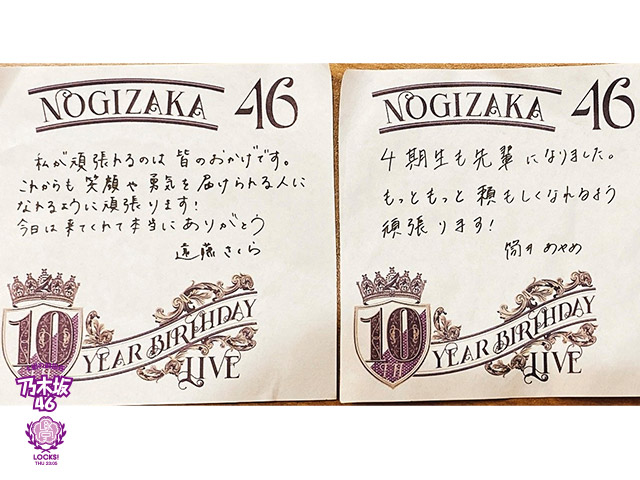 NOGIZAKA 46
私が頑張れるのは皆のおかげです。
これからも笑顔や勇気を届けられる人に
なれるように頑張ります!
今日は来てくれて本当にありがとう
遠藤さくら
10
YEAR BIRTHDAY
LIVE
NOGIZAKA 46
4期生も先輩になりました。
もっともっと頼もしくなれるよう
頑張ります!
筒井あやめ
10
YEAR BIRTHDAY
LIVE
乃木坂
46
LOCKS!
THU 23:08